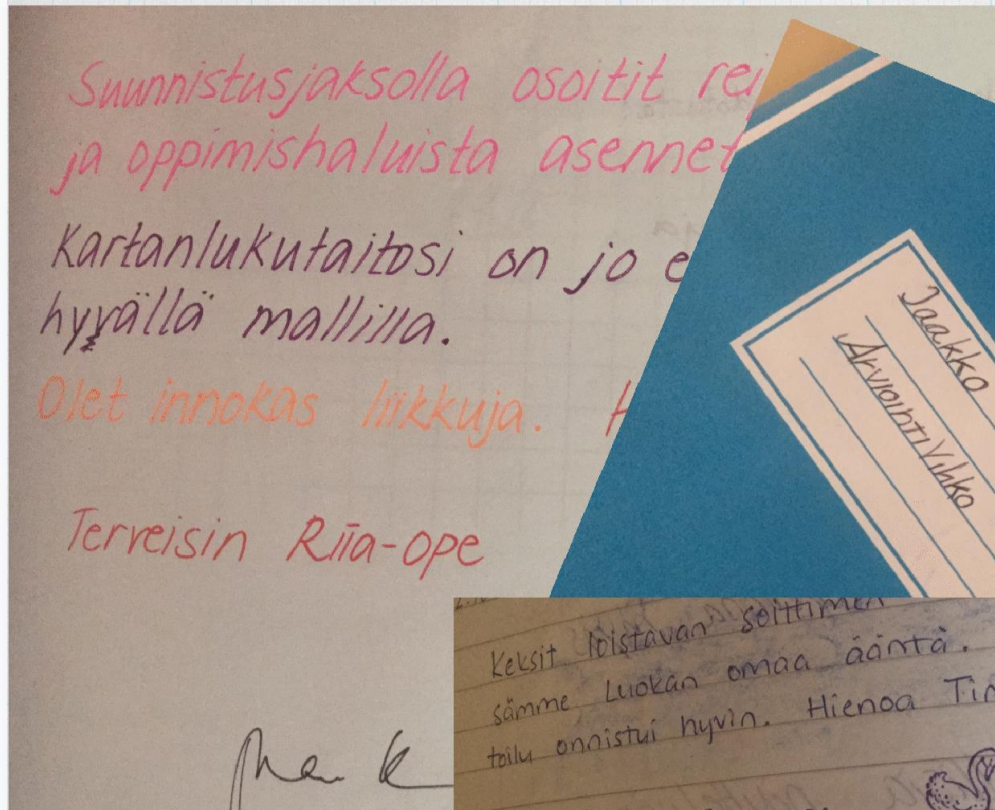 Suunnistusjaksolla osoitit rei
ja oppimishaluista asennet
Kartanlukutaitosi on jo e
hyvällä mallilla.
Olet innokas liikkuja. H
Terveisin Riia-ope
Jaakko
ArviointiVihko
Keksit loistavan soittimen
sämme Luokan omaa ääntä.
toilu onnistui hyvin. Hienoa Tim